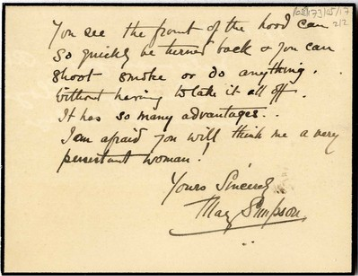 You see the front of the hood can
so quickly be turned back & you can
shoot smoke or do anything.
Without having to take it all off.
It has so many advantages..
I am afraid you will think me a very
persistant woman!
Yours Sincerely
May Simpson